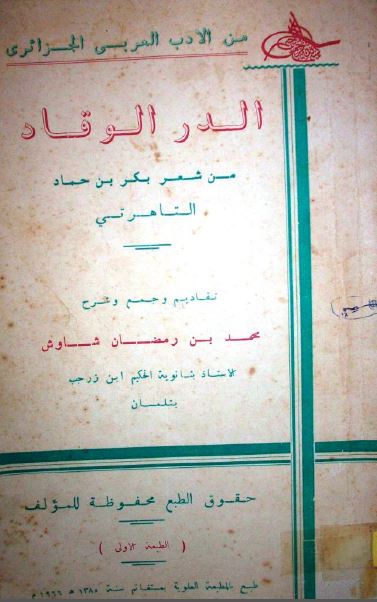 من الادب العربي الجزائرى
الدر الوقاد
من شعر بكر بن حماد
التاهرتي
تقديم وجمع وشرح
محمد بن رمضان شاوش
الاستاذ بثانوية الحكيم ابن زرجب
بتلمسان
حقوق الطبع محفوظة للمؤلف
( الطبعة الاولى )
طبع بالمطبعة العلوية بمستغانم سنة ١٣٨٥ هـ ١٩٦٦ م